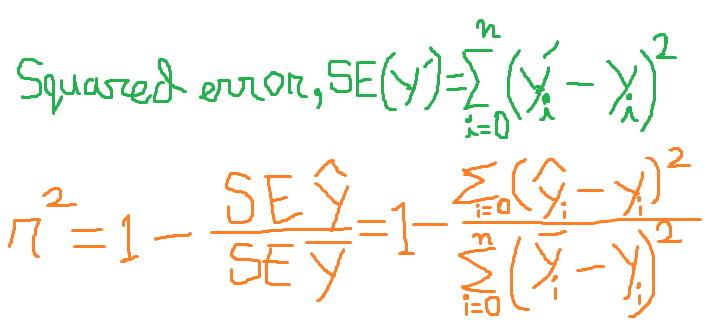 Squared error, SE(y′) = ∑_{i=0}^{n} (y′_i − y_i)^2
r^2 = 1 − \frac{SE ŷ}{SE ȳ} = 1 − \frac{∑_{i=0} (ŷ_i − y_i)^2}{∑_{i=0}^{n} (ȳ_i − y_i)^2}